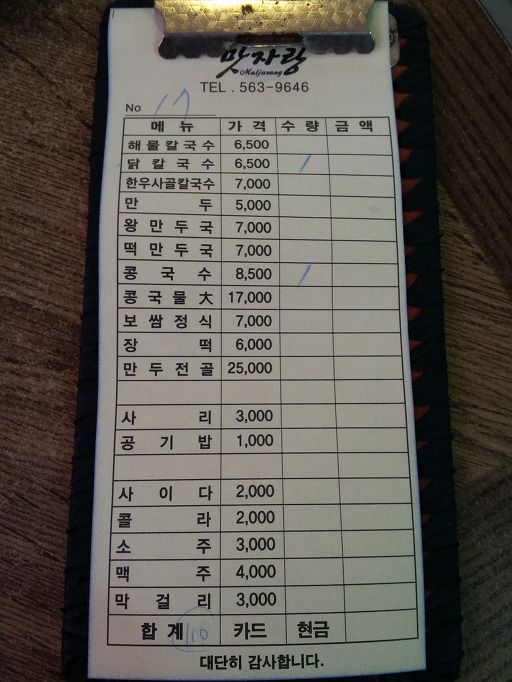 맛자랑
Matjarang
TEL. 563-9646
No 17
메뉴 가격 수량 금액
해물칼국수 6,500
닭칼국수 6,500 /
한우사골칼국수 7,000
만두 5,000
왕만두국 7,000
떡만두국 7,000
콩국수 8,500 /
콩국물大 17,000
보쌈정식 7,000
장떡 6,000
만두전골 25,000
사리 3,000
공기밥 1,000
사이다 2,000
콜라 2,000
소주 3,000
맥주 4,000
막걸리 3,000
합계 카드 현금
대단히 감사합니다.